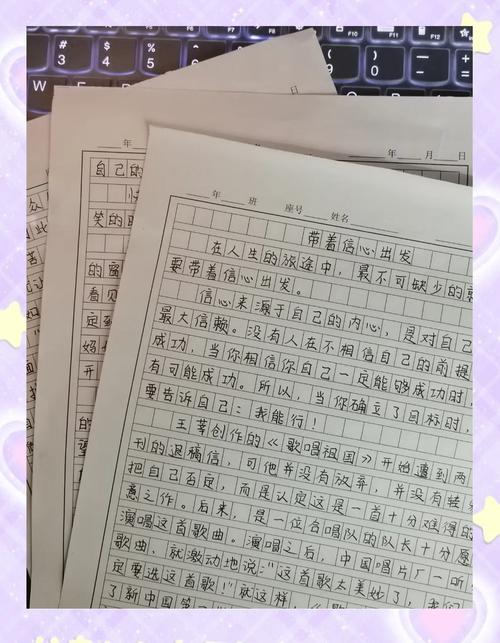 # $ % &
3 4 5 6 9 0
W E
F9 F10 F11 F12
日
年
年 月 日
自己的
笑的
的窗
看见
定到
妈
开
的
年 班 座号 姓名
带着信心出发
在人生的旅途中,最不可缺少的就
要带着信心出发。
信心来源于自己的内心,是对自己
最大信赖。没有人在不相信自己的前提
成功,当你相信你自己一定能够成功时,
有可能成功。所以,当你确立了目标时,
要告诉自己:我能行!
王莘创作的《歌唱祖国》开始遭到两
刊的退稿信,可他并没有放弃,并没有轻
把自己否定,而是认定这是一首十分难得的
意之作。后来,是一位合唱队的队长十分愿
演唱这首歌曲。演唱之后,中国唱片厂一听
歌曲,就激动地说:"这首歌太美妙了,我们
定要选这首歌!"就这样,《歌
了新中国第一